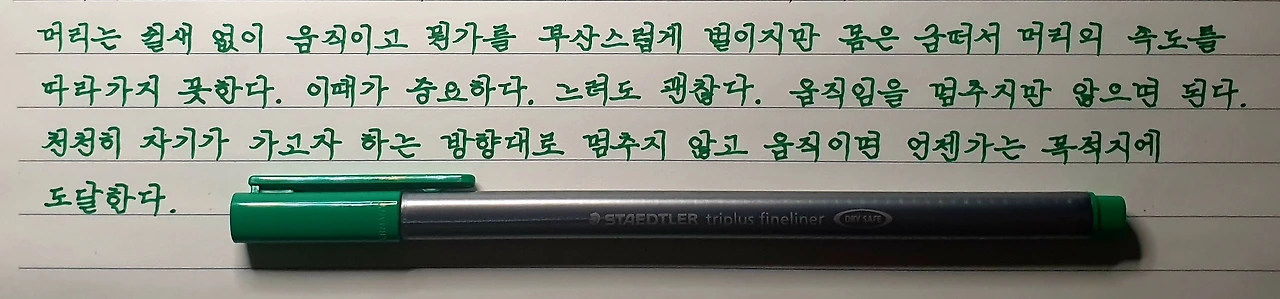 머리는 쉴새 없이 움직이고 평가를 부산스럽게 벌이지만 몸은 굼떠서 머리의 속도를
따라가지 못한다. 이때가 중요하다. 느려도 괜찮다. 움직임을 멈추지만 않으면 된다.
천천히 자기가 가고자 하는 방향대로 멈추지 않고 움직이면 언젠가는 목적지에
도달한다.
STAEDTLER triplus fineliner DRY SAFE